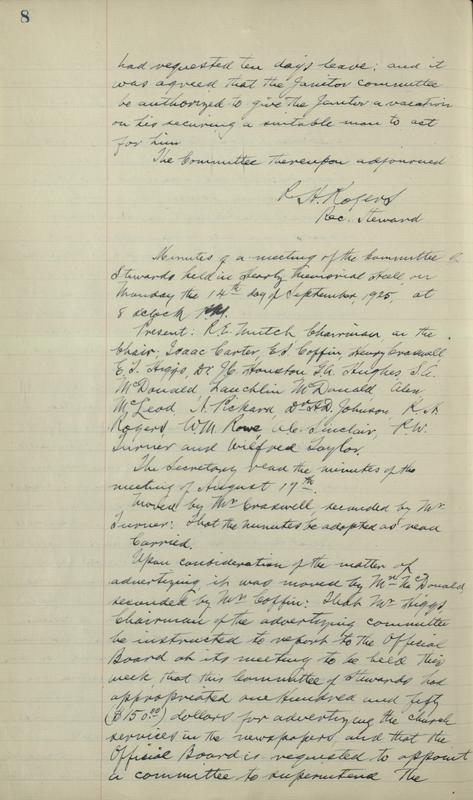 8
had requested ten days leave; and it
was agreed that the Janitor committee
be authorized to give the Janitor a vacation
on his securing a suitable man to act
for him
The Committee thereupon adjourned
R. H. Rogers
Rec. Steward
Minutes of a meeting of the Committee of
Stewards held in Heartz Memorial Hall on
Monday the 14th day of September 1925, at
8 oclock
Present: R.E. Mutch Chairman, in the
Chair; Isaac Carter, E.J. Coffin, Henry Craswell,
E.J. Higgs, Dr J.C. Houston, G.A. Hughes, J.A.
McDonald, Lauchlin McDonald, Alex.
McLeod, N. Pickard, Dr H.D. Johnson, R.H.
Rogers, W.M. Rowe, A.C. Sinclair, P.W.
Turner and Wilfred Taylor.
The Secretary read the minutes of the
meeting of August 17th.
Moved by Mr Craswell, seconded by Mr.
Turner: That the minutes be adopted as read
Carried.
Upon consideration of the matter of
advertizing it was moved by Mr McDonald
seconded by Mr Coffin: That Mr Higgs
Chairman of the advertizing committee
be instructed to report to the Official
Board at its meeting to be held this
week that this Committee of Stewards had
appropriated one hundred and fifty
($150.00) dollars for advertizing the church
services in the newspapers and that the
Official Board is requested to appoint
a committee to superintend the